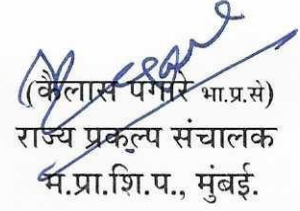 (कैलास पगारे भा.प्र.से)
राज्य प्रकल्प संचालक
म.प्रा.शि.प., मुंबई.